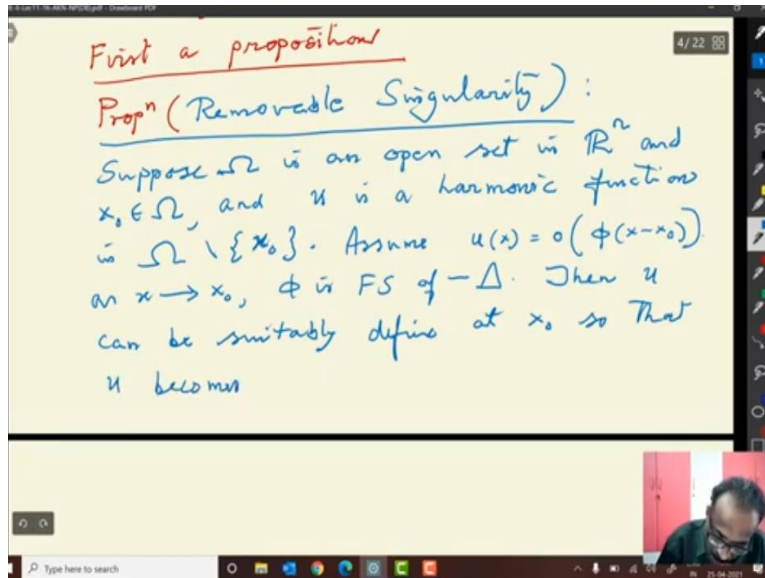 6-Lec11-16-AKN-NP(08).pdf - Drawboard PDF
4/22
First a proposition
Propⁿ (Removable Singularity) :
Suppose Ω is an open set in ℝⁿ and
x₀ ∈ Ω, and u is a harmonic function
in Ω \ {x₀}. Assume u(x) = o(ϕ(x-x₀))
as x → x₀, ϕ is FS of -Δ. Then u
can be suitably define at x₀ so that
u becomes
Type here to search
IN 25-04-2021